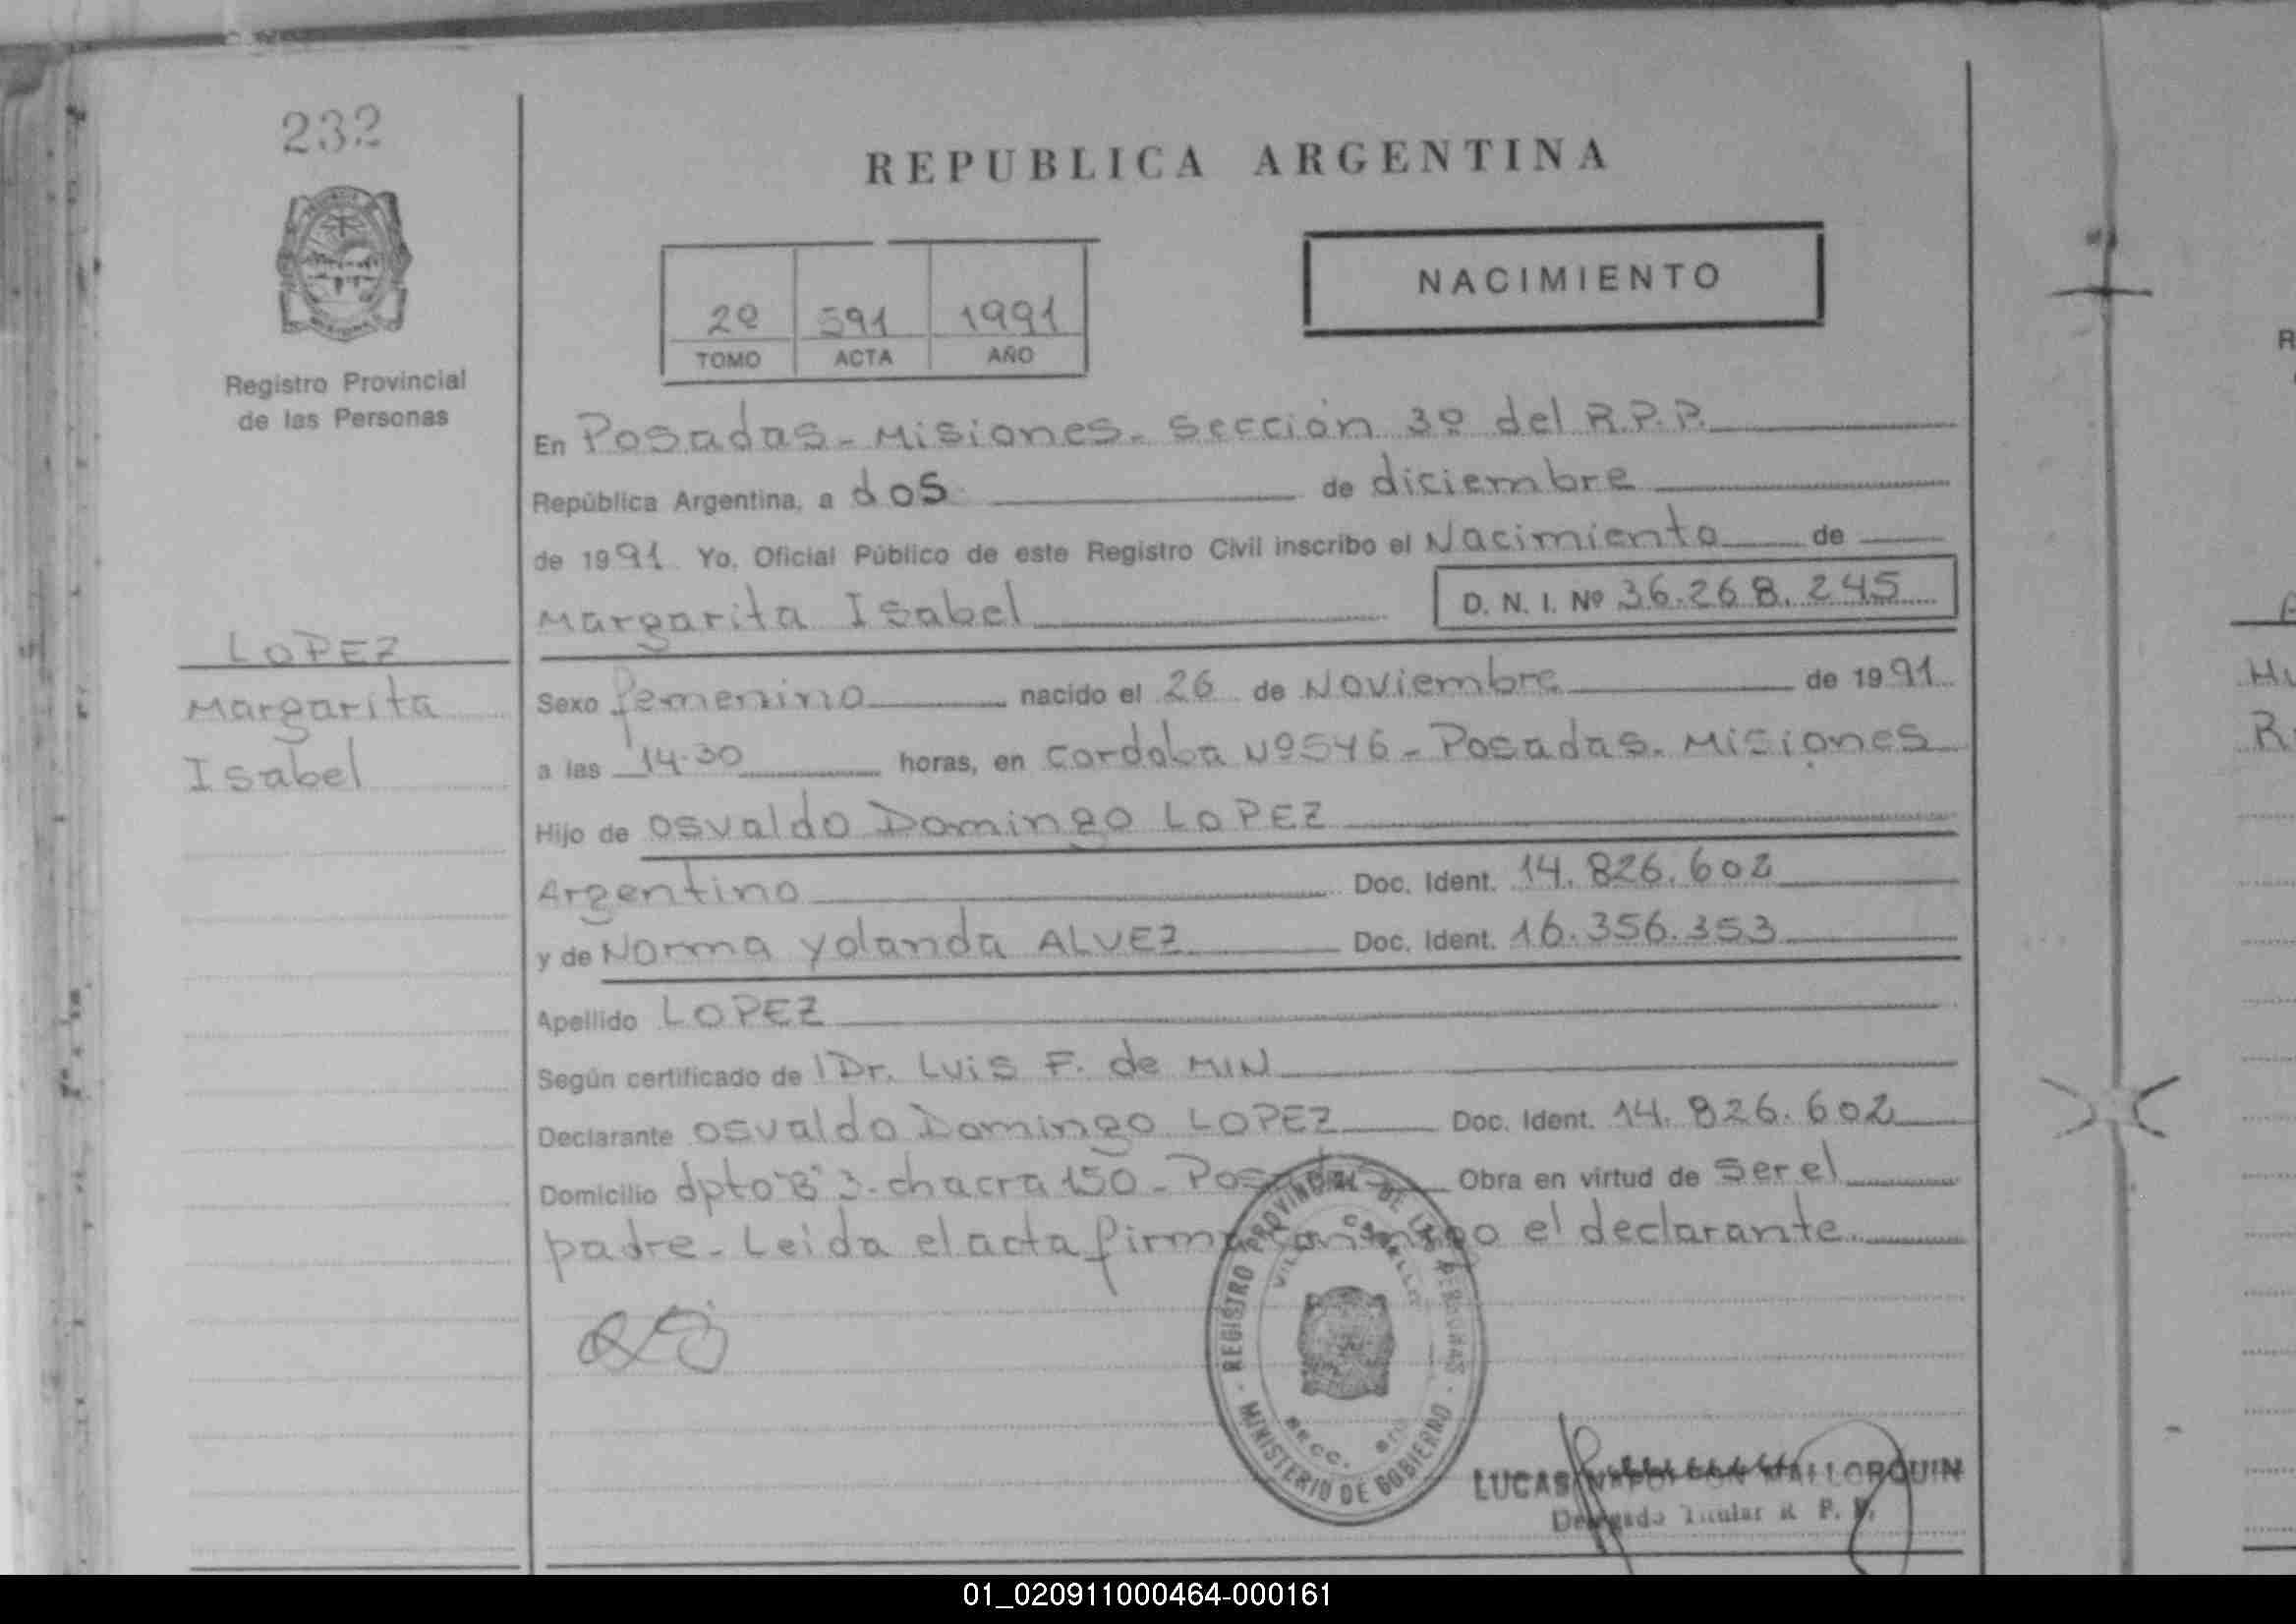 232
REPUBLICA ARGENTINA
NACIMIENTO
2º 591 1991
TOMO ACTA AÑO
Registro Provincial
de las Personas
En Posadas - Misiones - Sección 3º del R.P.P.
República Argentina, a dos de diciembre
de 1991 Yo, Oficial Público de este Registro Civil inscribo el Nacimiento de
Margarita Isabel D. N. I. Nº 36.268.245
LOPEZ
Margarita
Isabel
Sexo femenino nacido el 26 de Noviembre de 1991
a las 14-30 horas, en cordoba Nº546 - Posadas - Misiones
Hijo de Osvaldo Domingo LOPEZ
Argentino Doc. Ident. 14.826.602
y de Norma Yolanda ALVEZ Doc. Ident. 16.356.353
Apellido LOPEZ
Según certificado de Dr. Luis F. de MIN
Declarante Osvaldo Domingo LOPEZ Doc. Ident. 14.826.602
Domicilio dpto "B" 3 - chacra 150 - Posadas Obra en virtud de ser el
padre - Leida el acta firma conmigo el declarante
REGISTRO PROVINCIAL DE LAS PERSONAS
MINISTERIO DE GOBIERNO
LUCAS NAPOLEON MALLORQUIN
Delegado Titular R. P. P.
01_020911000464-000161